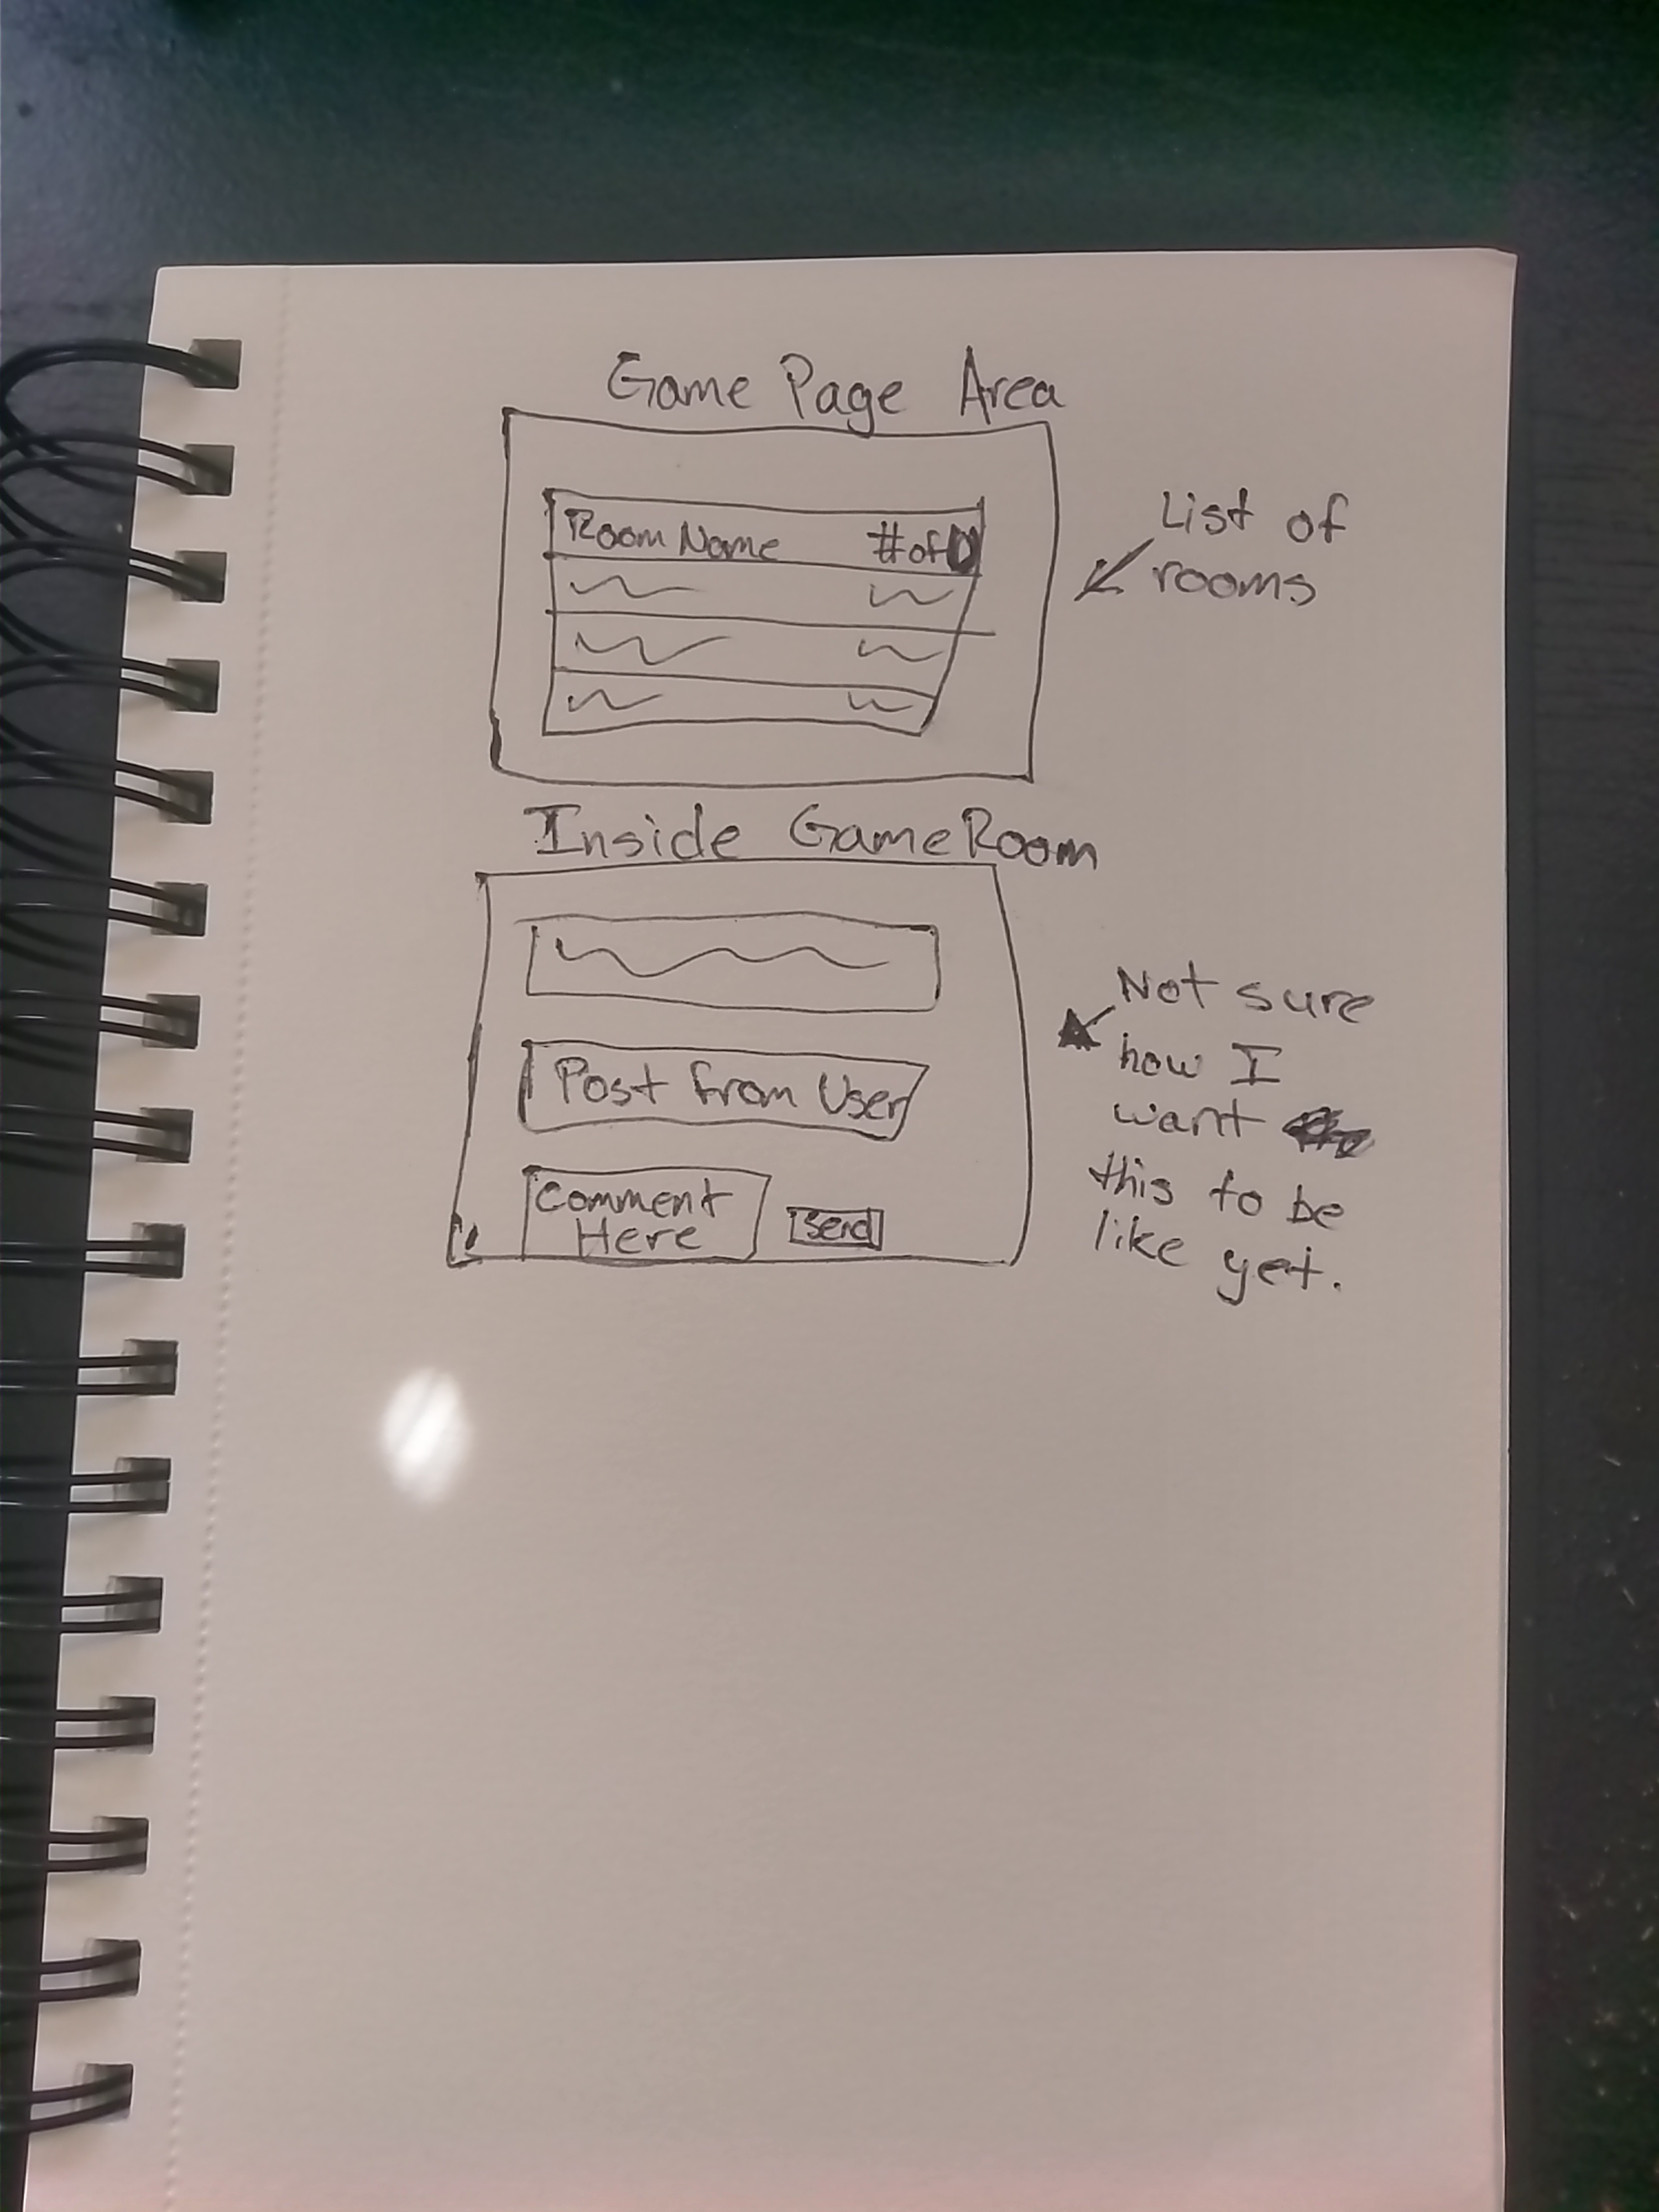 Game Page Area
Room Name #of
List of
rooms
Inside GameRoom
Post from User
Comment
Here
Send
Not sure
how I
want
this to be
like yet.